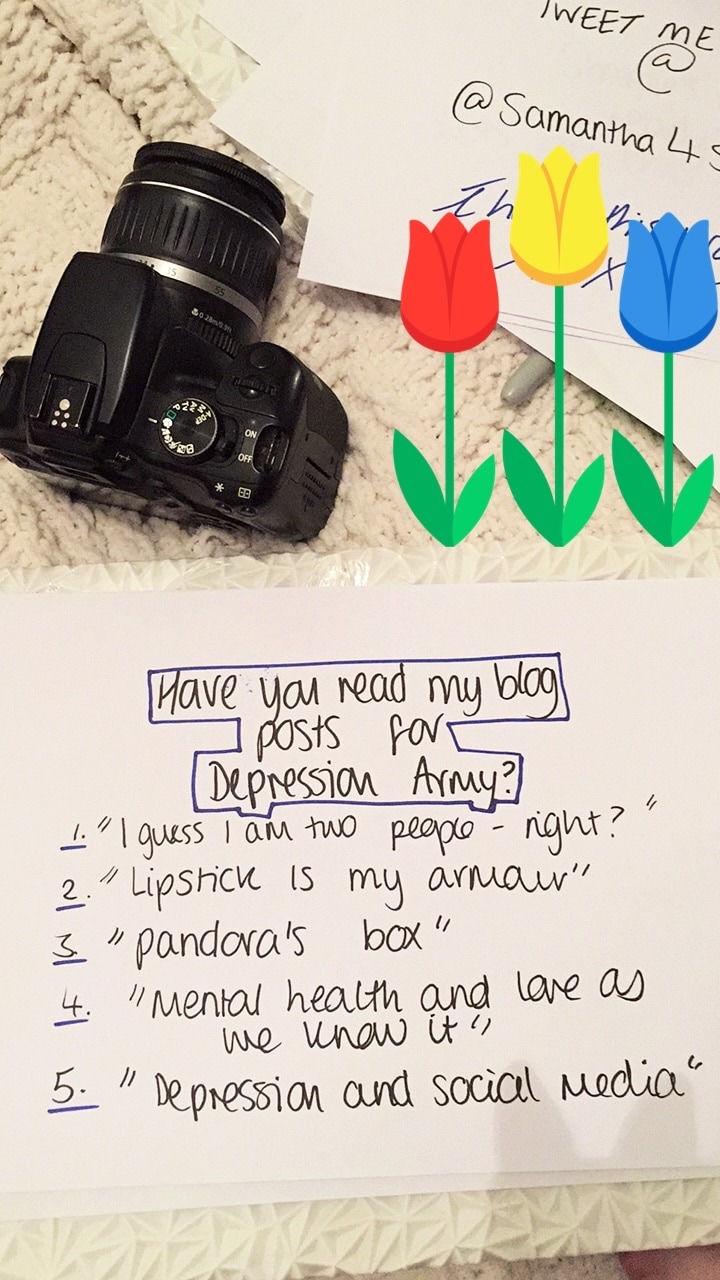 TWEET ME
@
@Samantha 4 S
55
0.28m/0.9ft
ON
OFF
Have you read my blog
posts for
Depression Army?
1. "I guess I am two people - right?"
2. "Lipstick is my armour"
3. "pandora's box"
4. "Mental health and love as
we know it"
5. "Depression and social media"